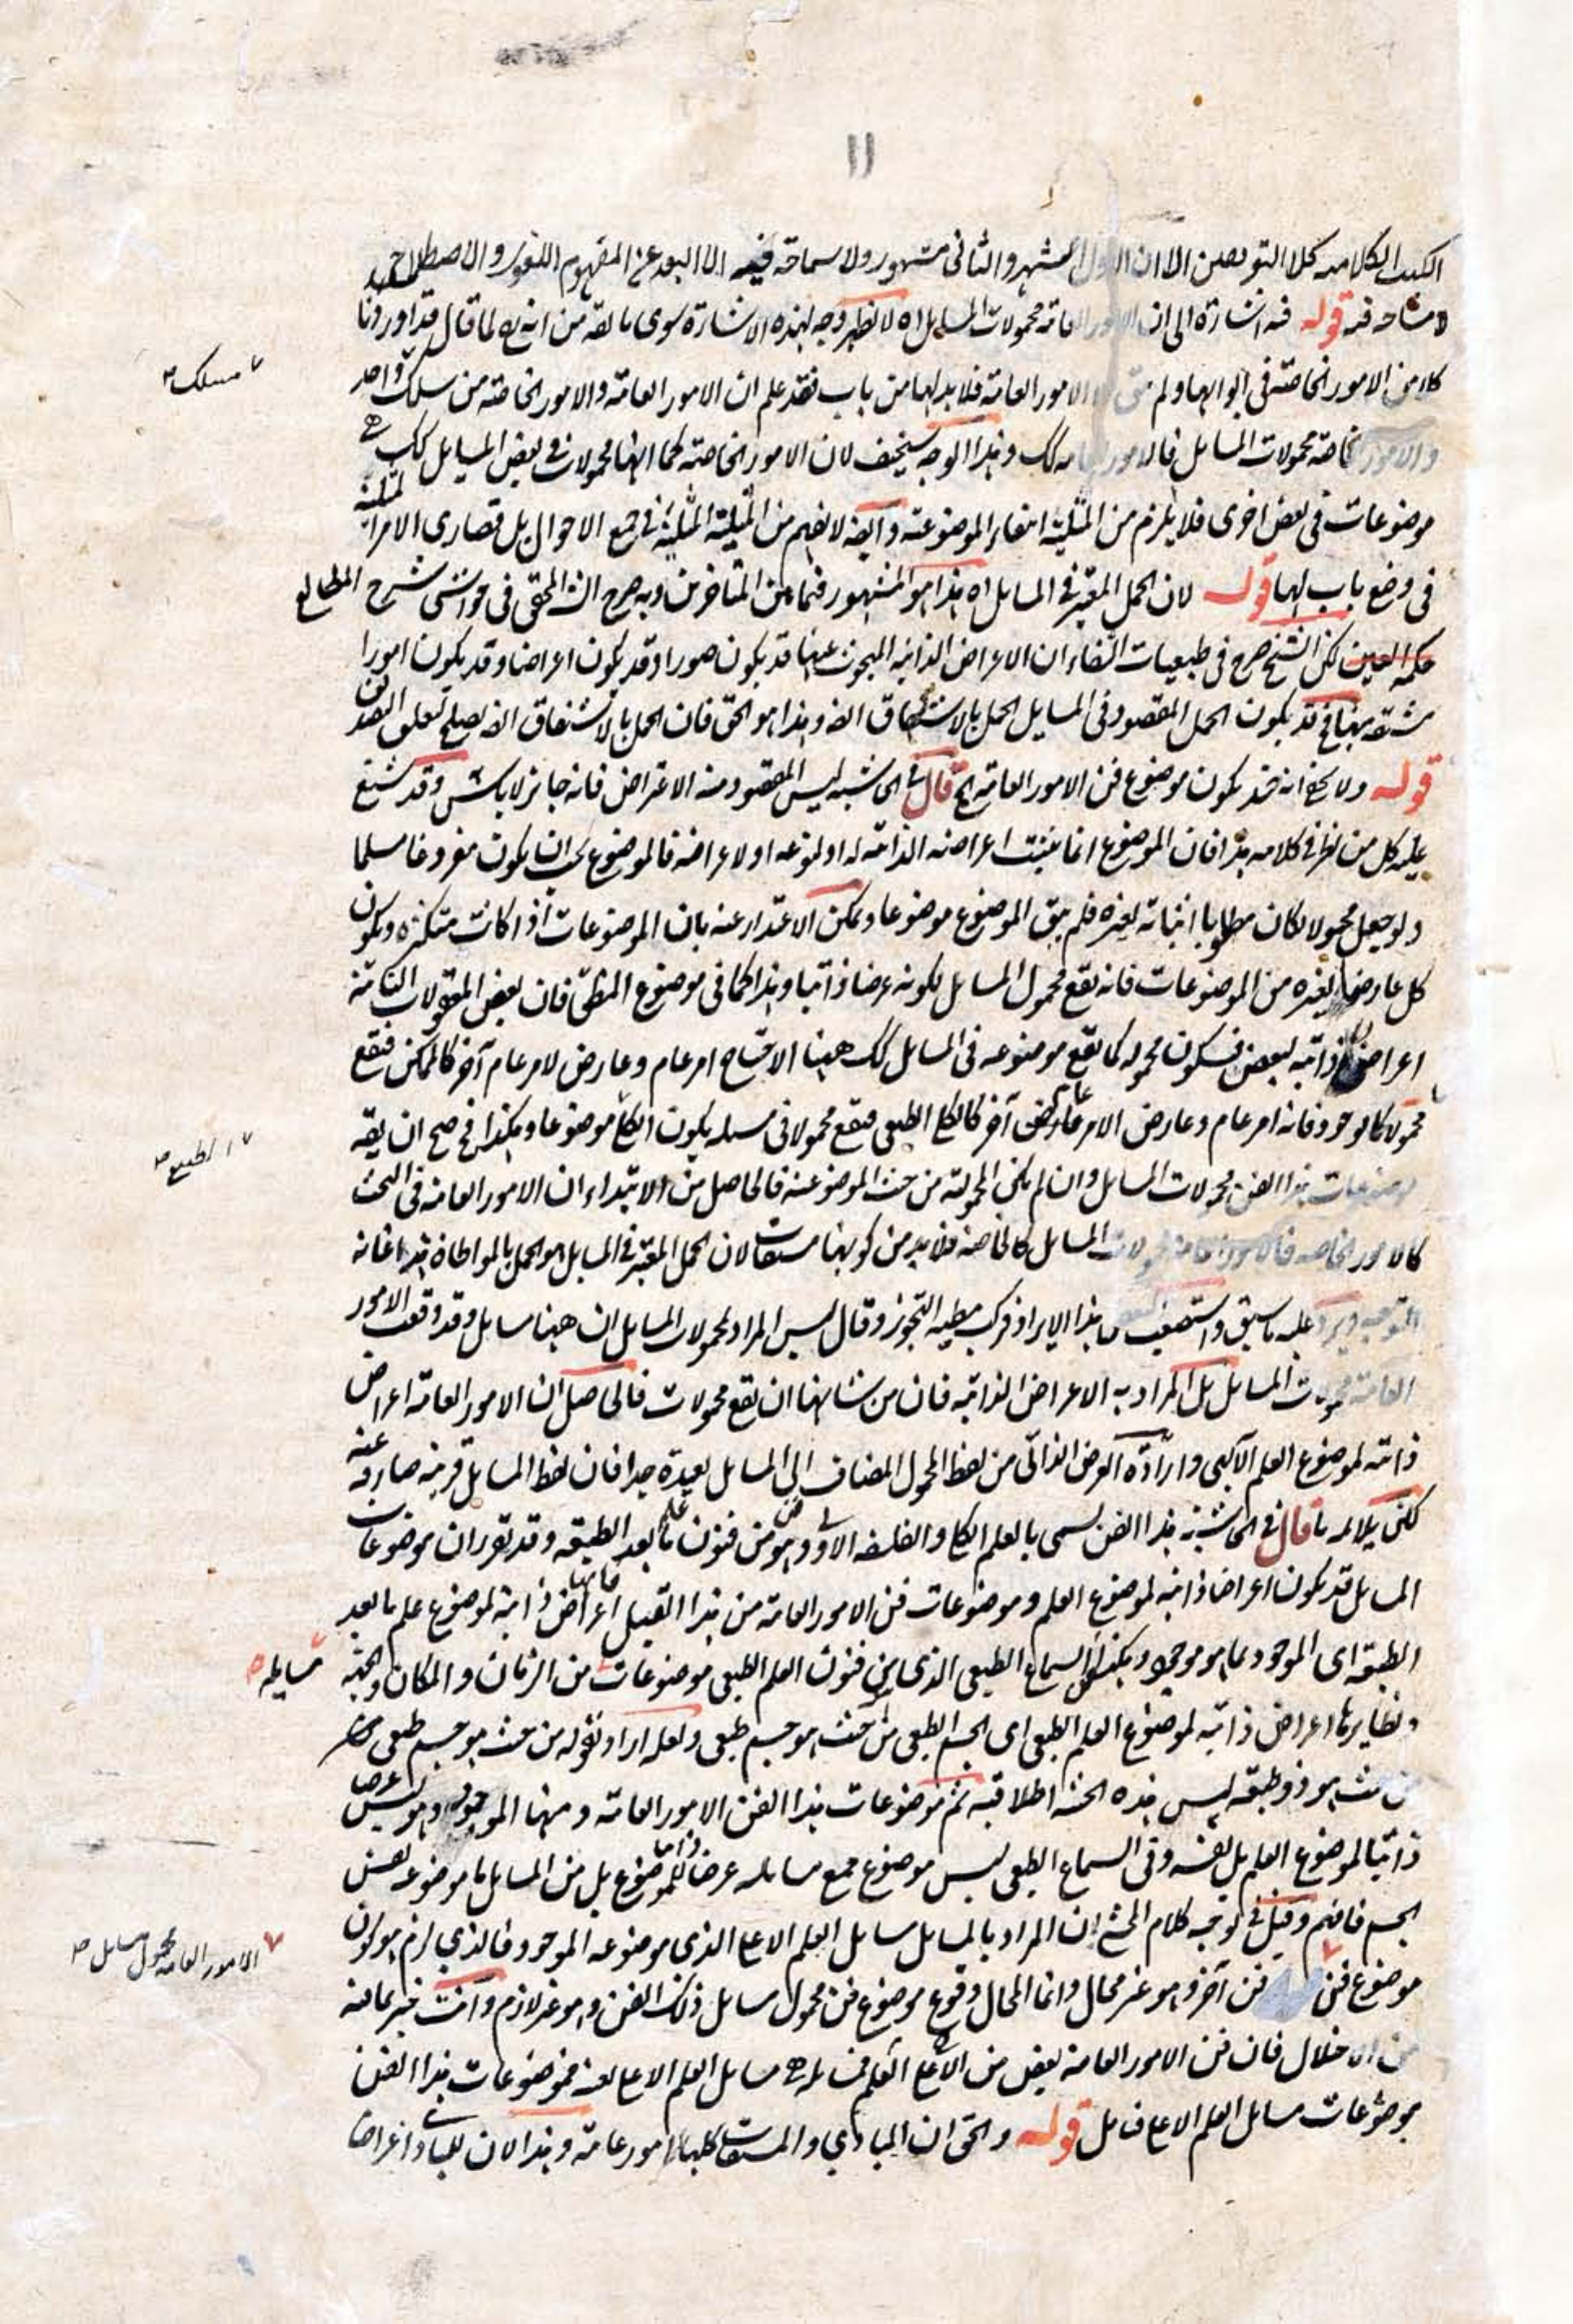 ١١
الكتب الكلامية كلا التعريفين الا ان الاول اشهر والثانى مشهور ولا سماحة فيه الا البعد عن المفهوم اللغوى والاصطلاح
لا مشاحة فيه قوله فيه اشارة الى ان الامور العامة محمولات المسايل اه لا يظهر وجه لهذه الاشارة سوى ما يقه من انه لما قال قد اوردنا
كلا من الامور الخاصة فى ابوابها ولم الامور العامة فلا بد لها من باب فقد علم ان الامور العامة والامور الخاصة من سلك واحد
مسلك
والامور الخاصة محمولات المسايل فالامور العامة كك وهذا الوجه سخيف لان الامور الخاصة كما انها محمولات فى بعض المسايل كك هى
موضوعات فى بعض اخرى فلا يلزم من المثلية انتفاء الموضوعية وايضه لا يفهم من المثلية المثلية فى جميع الاحوال بل قصارى الامر المثلية
فى وضع باب لها قوله لان الحمل المعتبر فى المسايل اه هذا هو المشهور فيما بين المتاخرين وبه صرح الش المحقق فى حواشى شرح المطالع
حكمة العين لكن الشيخ صرح فى طبيعيات الشفاء ان الاعراض الذاتية المبحوث عنها قد يكون صورا وقد يكون اعراضا وقد يكون امورا
مشتقة منها فح قد يكون الحمل المقصود فى المسايل الحمل بالاشتقاق ايضه وهذا هو الحق فان الحمل بالاشتقاق ايضه يصلح لتعلق التصديق
قوله ولا يخفى انه قد يكون موضوع فن الامور العامة الخ قال فى الحاشية ليس المقصود منه الاعتراض فانه جايز لا باس وقد شنع
عليه كل من نظر فى كلامه هذا فان الموضوع انما يثبت اعراضه الذاتية له او لنوعه او لاعراضه فالموضوع يجب ان يكون مفروغا مسلما
ولو جعل محمولا لكان مطلوبا اثباته لغيره فلم يبق الموضوع موضوعا ويمكن الاعتذار عنه بان الموضوعات اذا كانت متكثرة ويكون
كل عارضا لغيره من الموضوعات فانه يقع محمول المسايل لكونه عرضا ذاتيا وهذا كما فى موضوع المنطق فان بعض المعقولات الثانية
اعراض ذاتية لبعض فيكون محموله كما يقع موضوعه فى المسايل كك ههنا الاحتياج امر عام وعارض لامر عام آخر كالممكن فيقع
محمولا كالوجود فانه امر عام وعارض الامر عارض آخر كالكلى الطبعى فيقع محمولا فى مسئلة يكون الكلى موضوعا وهكذا فح صح ان يقه
الطبيع
موضوعات هذا الفن محمولات المسايل وان لم يكن المحمولية من حيث الموضوعية فالحاصل من الابتداء ان الامور العامة فى البحث
كالامور الخاصة فالامور العامة محمولات المسايل كالخاصة فلا بد من كونها مشتقات لان الحمل المعتبر فى المسايل هو الحمل بالمواطاة هذا غاية
التوجيه ويرد عليه ما سبق واستصعب هذا الايراد فركب مطية التجوز وقال ليس المراد بمحمولات المسايل ان ههنا مسايل وقد وقعت الامور
العامة محمولات المسايل بل المراد به الاعراض الذاتية فان من شانها ان يقع محمولات فالحاصل ان الامور العامة اعراض
ذاتية لموضوع العلم الآلهى وارادة العرض الذاتى من لفظ المحمول المضاف الى المسايل بعيدة جدا فان لفظ المسايل قرينة صارفة عنه
لكن يلايمه ما قال فى الحاشية هذا الفن يسمى بالعلم الكلى والفلسفة الاولى وهو من فنون علم ما بعد الطبيعة وقد تقرر ان موضوعات
المسايل قد يكون اعراضا ذاتية لموضوع العلم وموضوعات فن الامور العامة من هذا القبيل فانها اعراض ذاتية لموضوع علم ما بعد
الطبيعة اى الموجود بما هو موجود وهكذا السماع الطبعى الذى من فنون العلم الطبعى موضوعات من الزمان والمكان والجهة
مسايله
ونظايرها اعراض ذاتية لموضوع العلم الطبعى اى الجسم الطبعى من حيث هو جسم طبعى ولعله اراد بقوله من حيث هو جسم طبعى
من حيث هو ذو طبيعة ليس هذه الحيثية اطلاقية ثم موضوعات هذا الفن الامور العامة ومنها الموجود وهو ليس عرضا
ذاتيا لموضوع العلم بل نفسه وفى السماع الطبعى ليس موضوع جميع مسايله عرضا ذاتيا للموضوع بل من المسايل ما موضوعه نفس
الجسم فافهم وقيل فى توجيه كلام المحشى ان المراد بالمسايل مسايل العلم الاعلى الذى موضوعه الموجود فالذى لزم هو كون
الامور العامة محمول مسايل
موضوع فن فن آخر وهو غير محال وانما المحال وقوع موضوع فن محمول مسايل ذلك الفن وهو غير لازم وانت خبير بما فيه
من الاختلال فان فن الامور العامة بعض من العلم الاعلى فمسايله هى مسايل العلم الاعلى بعينه فموضوعات هذا الفن
موضوعات مسايل العلم الاعلى فتامل قوله والحق ان المبادى والمشتقات كليهما امور عامة وهذا لان للمبادى اعراضا